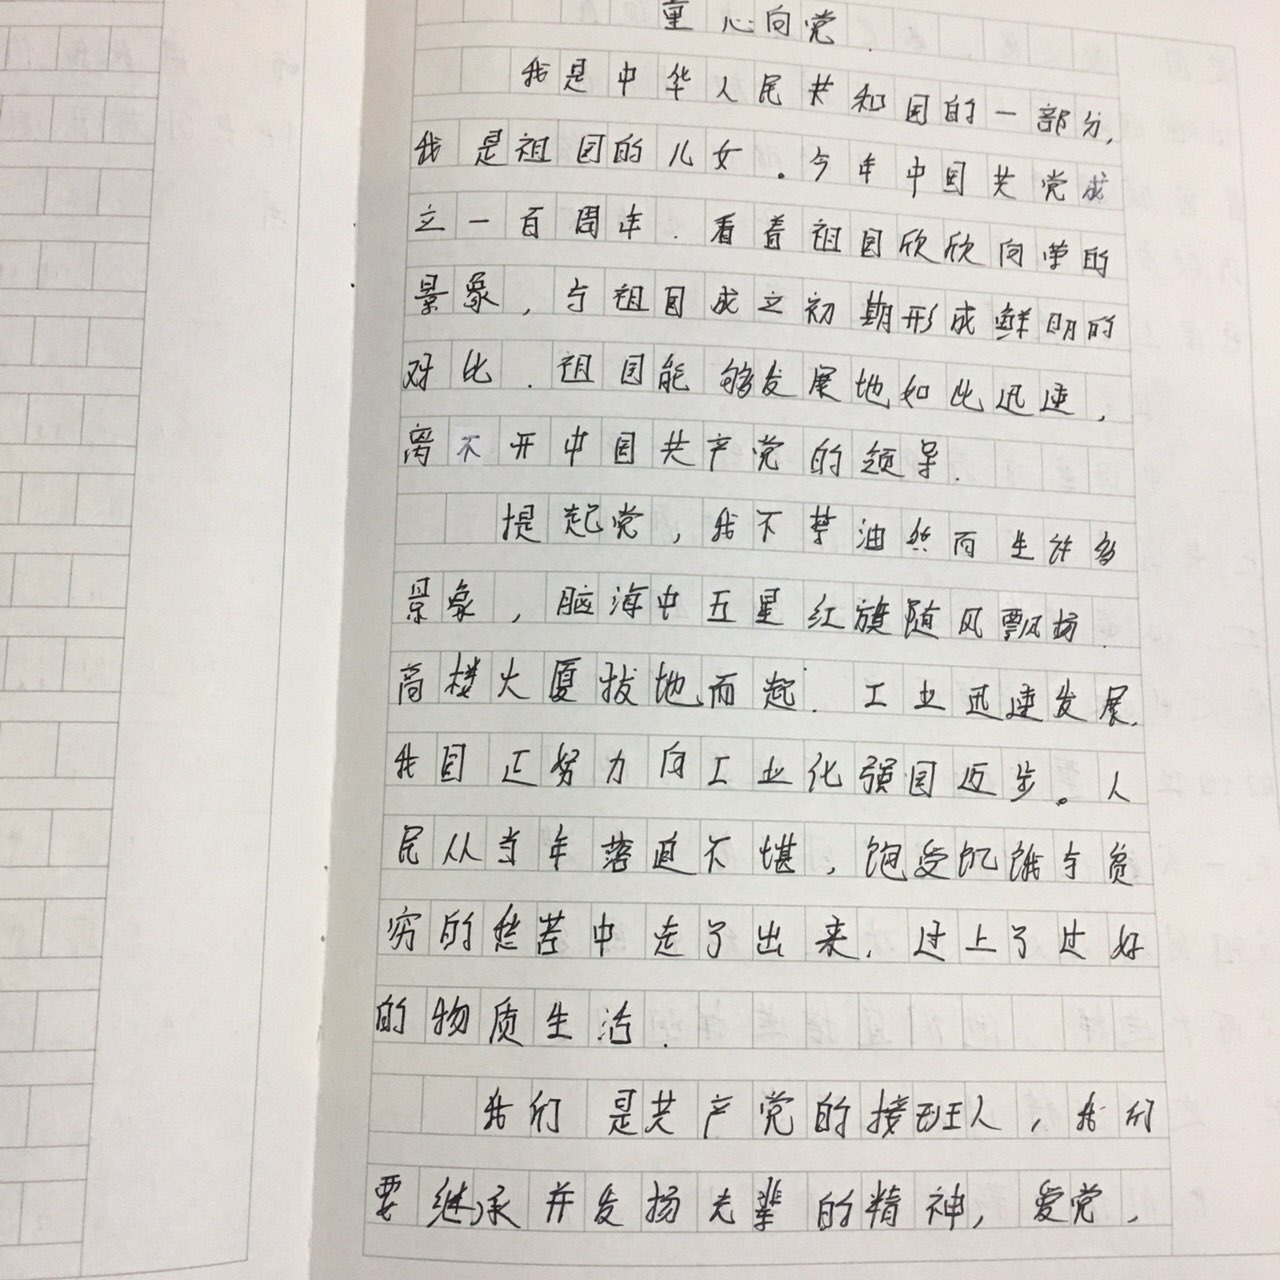 童心向党.
我是中华人民共和国的一部分,
我是祖国的儿女。今年中国共党成
立一百周年.看着祖国欣欣向荣的
景象,与祖国成立初期形成鲜明的
对比.祖国能够发展地如此迅速,
离不开中国共产党的领导.
提起党,我不禁油然而生许多
景象,脑海中五星红旗随风飘扬.
高楼大厦拔地而起.工业迅速发展.
我国正努力向工业化强国迈步。人
民从当年落迫不堪,饱受饥饿与贫
穷的愁苦中走了出来.过上了过好
的物质生活.
我们是共产党的接班人,我们
要继承并发扬先辈的精神,爱党,